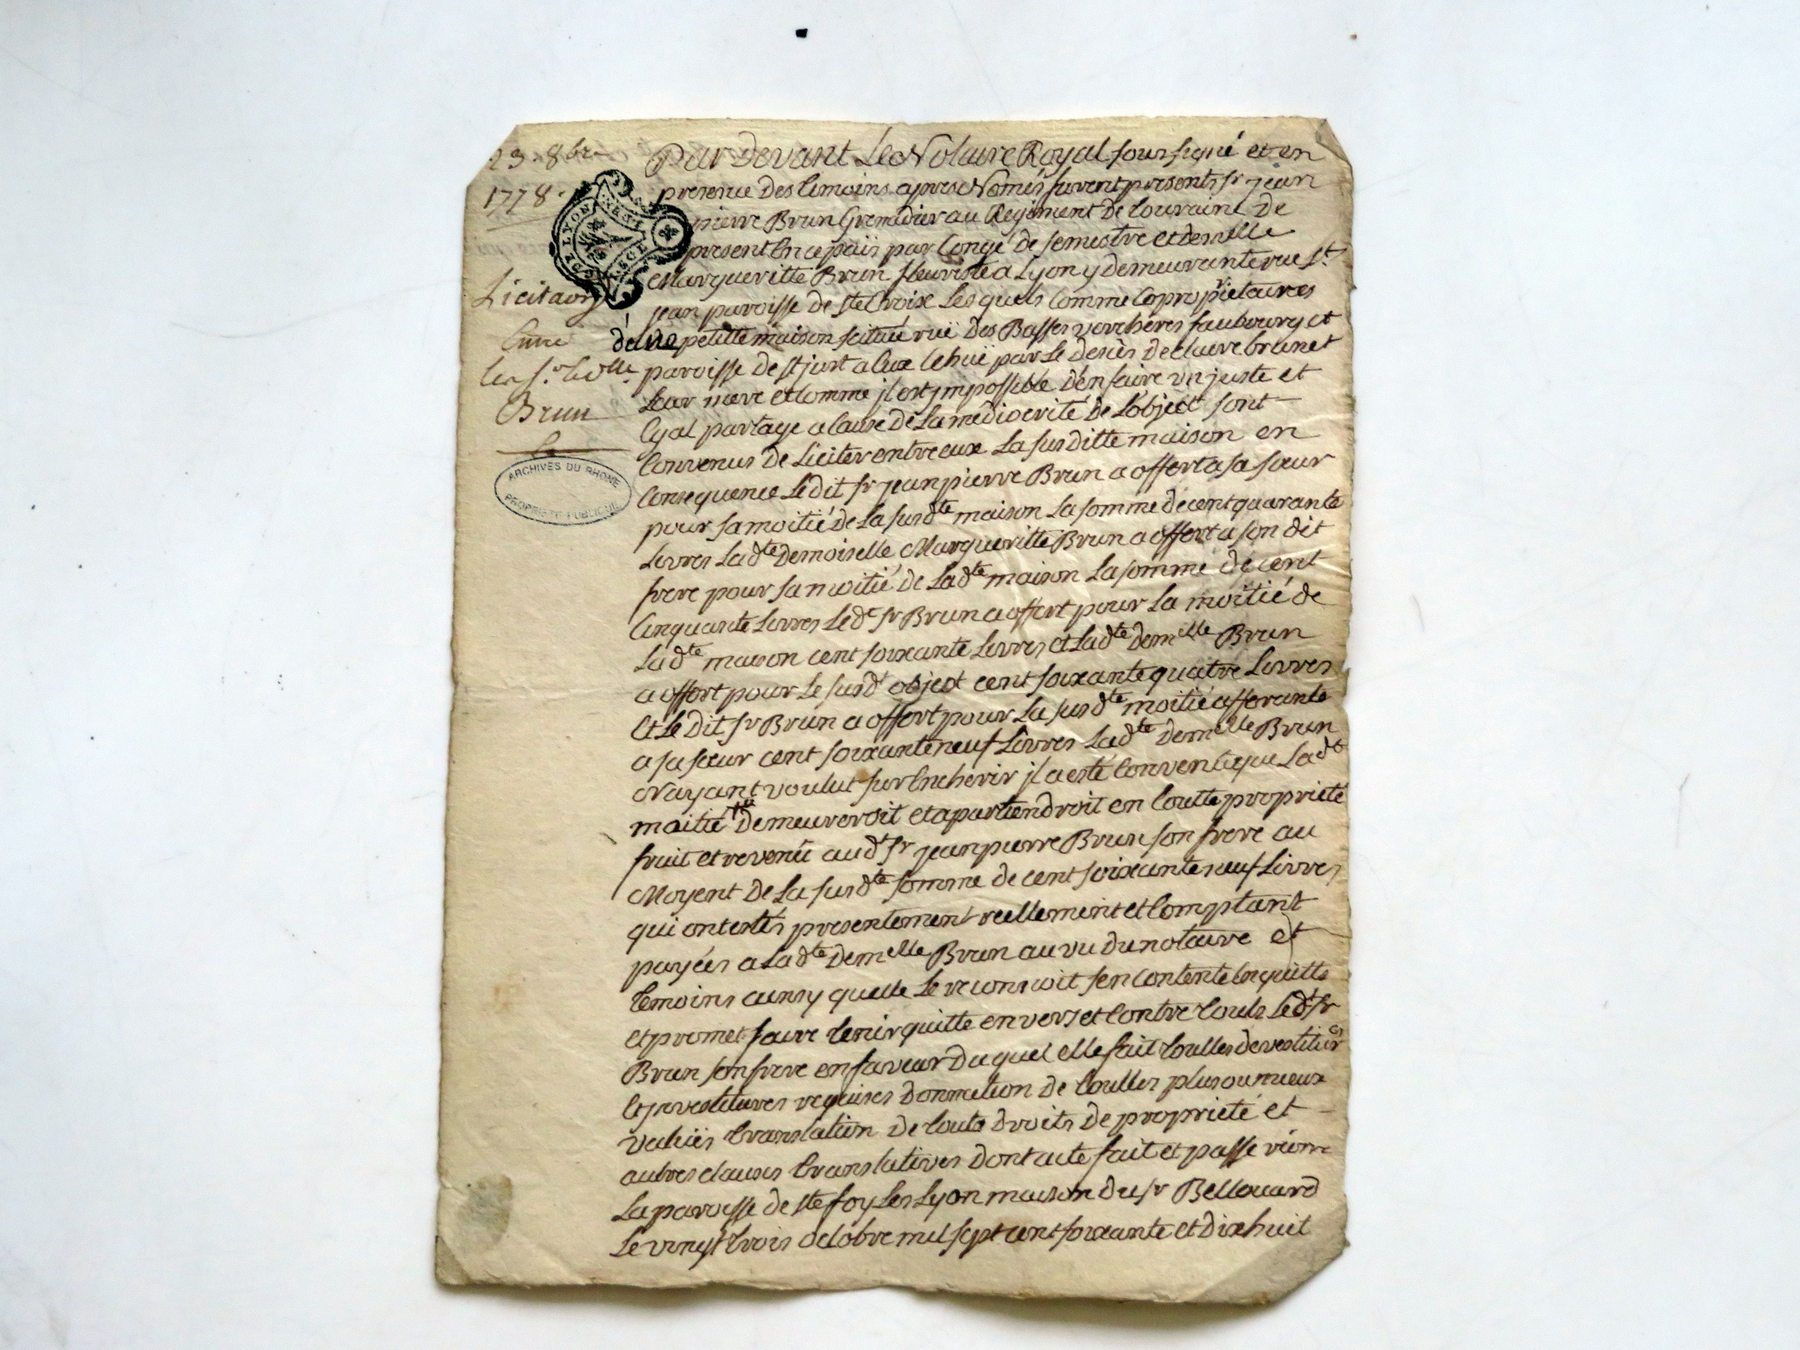 23 8bre
1778.
Licitaon
Entre
les Sr. et Dlle
Brun
LYON
ARCHIVES DU RHONE
PROPRIÉTÉ PUBLIQUE
Par Devant Le Notaire Royal soussigné et en
presence Des temoins apres Només furent presents Sr jean
pierre Brun Grenadier au Regiment De Lorraine De
present En ce païs par Congé de semestre et demlle
Margueritte Brun fleuriste a Lyon y demeurante rue St
jean paroisse de Ste Croix Lesquels Comme Coproprietaires
d'une petitte maison scituée ruë Des Basses verchères faubourg et
paroisse de St just a Eux Echuë par Le decès De claire brunet
Leur mere et Comme jl est jmpossible D'en faire un juste et
Egal partage a cause De La mediocrité De L'object sont
Convenus De Liciter entre eux La susditte maison en
Consequence Le dit Sr jean pierre Brun a offert a sa sœur
pour sa moitié De La susdte maison La somme de cent quarante
Livres La dte Demoiselle Margueritte Brun a offert a son dit
frere pour sa moitié de La dte maison La somme de cent
Cinquante Livres Le dt Sr Brun a offert pour La moitié de
La dte maison cent soixante Livres et La dte demelle Brun
a offert pour Le susdt object cent soixante quatre Livres
Et Le Dit Sr Brun a offert pour La susdte moitié afferante
a sa sœur cent soixante neuf Livres La dte Demelle Brun
N'ayant voulut sur Encherir jl a esté Convent Que La dte
moitié Demeureroit et apartiendroit en toutte proprieté
fruit et revenü au dt Sr jean pierre Brun son frere au
Moyent De La susdte somme de cent soixante neuf Livres
qui ont estés presentement reellement et Comptant
payées a La dte Demelle Brun au vu du notaire et
temoins ainsy quelle Le reconnoit s'en Contente En quitte
et promet faire tenir quitte envers et Contre touts Le dt Sr
Brun son frere en faveur Du quel elle fait touttes devestitures
Et jnvestitures requises Donnation de touttes plus ou mieux
valües translation De touts Droits De proprieté et
autres clauses translatives Dont acte fait et passé riere
La paroisse de Ste foy Les Lyon maison du Sr Bellouard
Le vingt trois octobre mil sept cent soixante et Dix huit